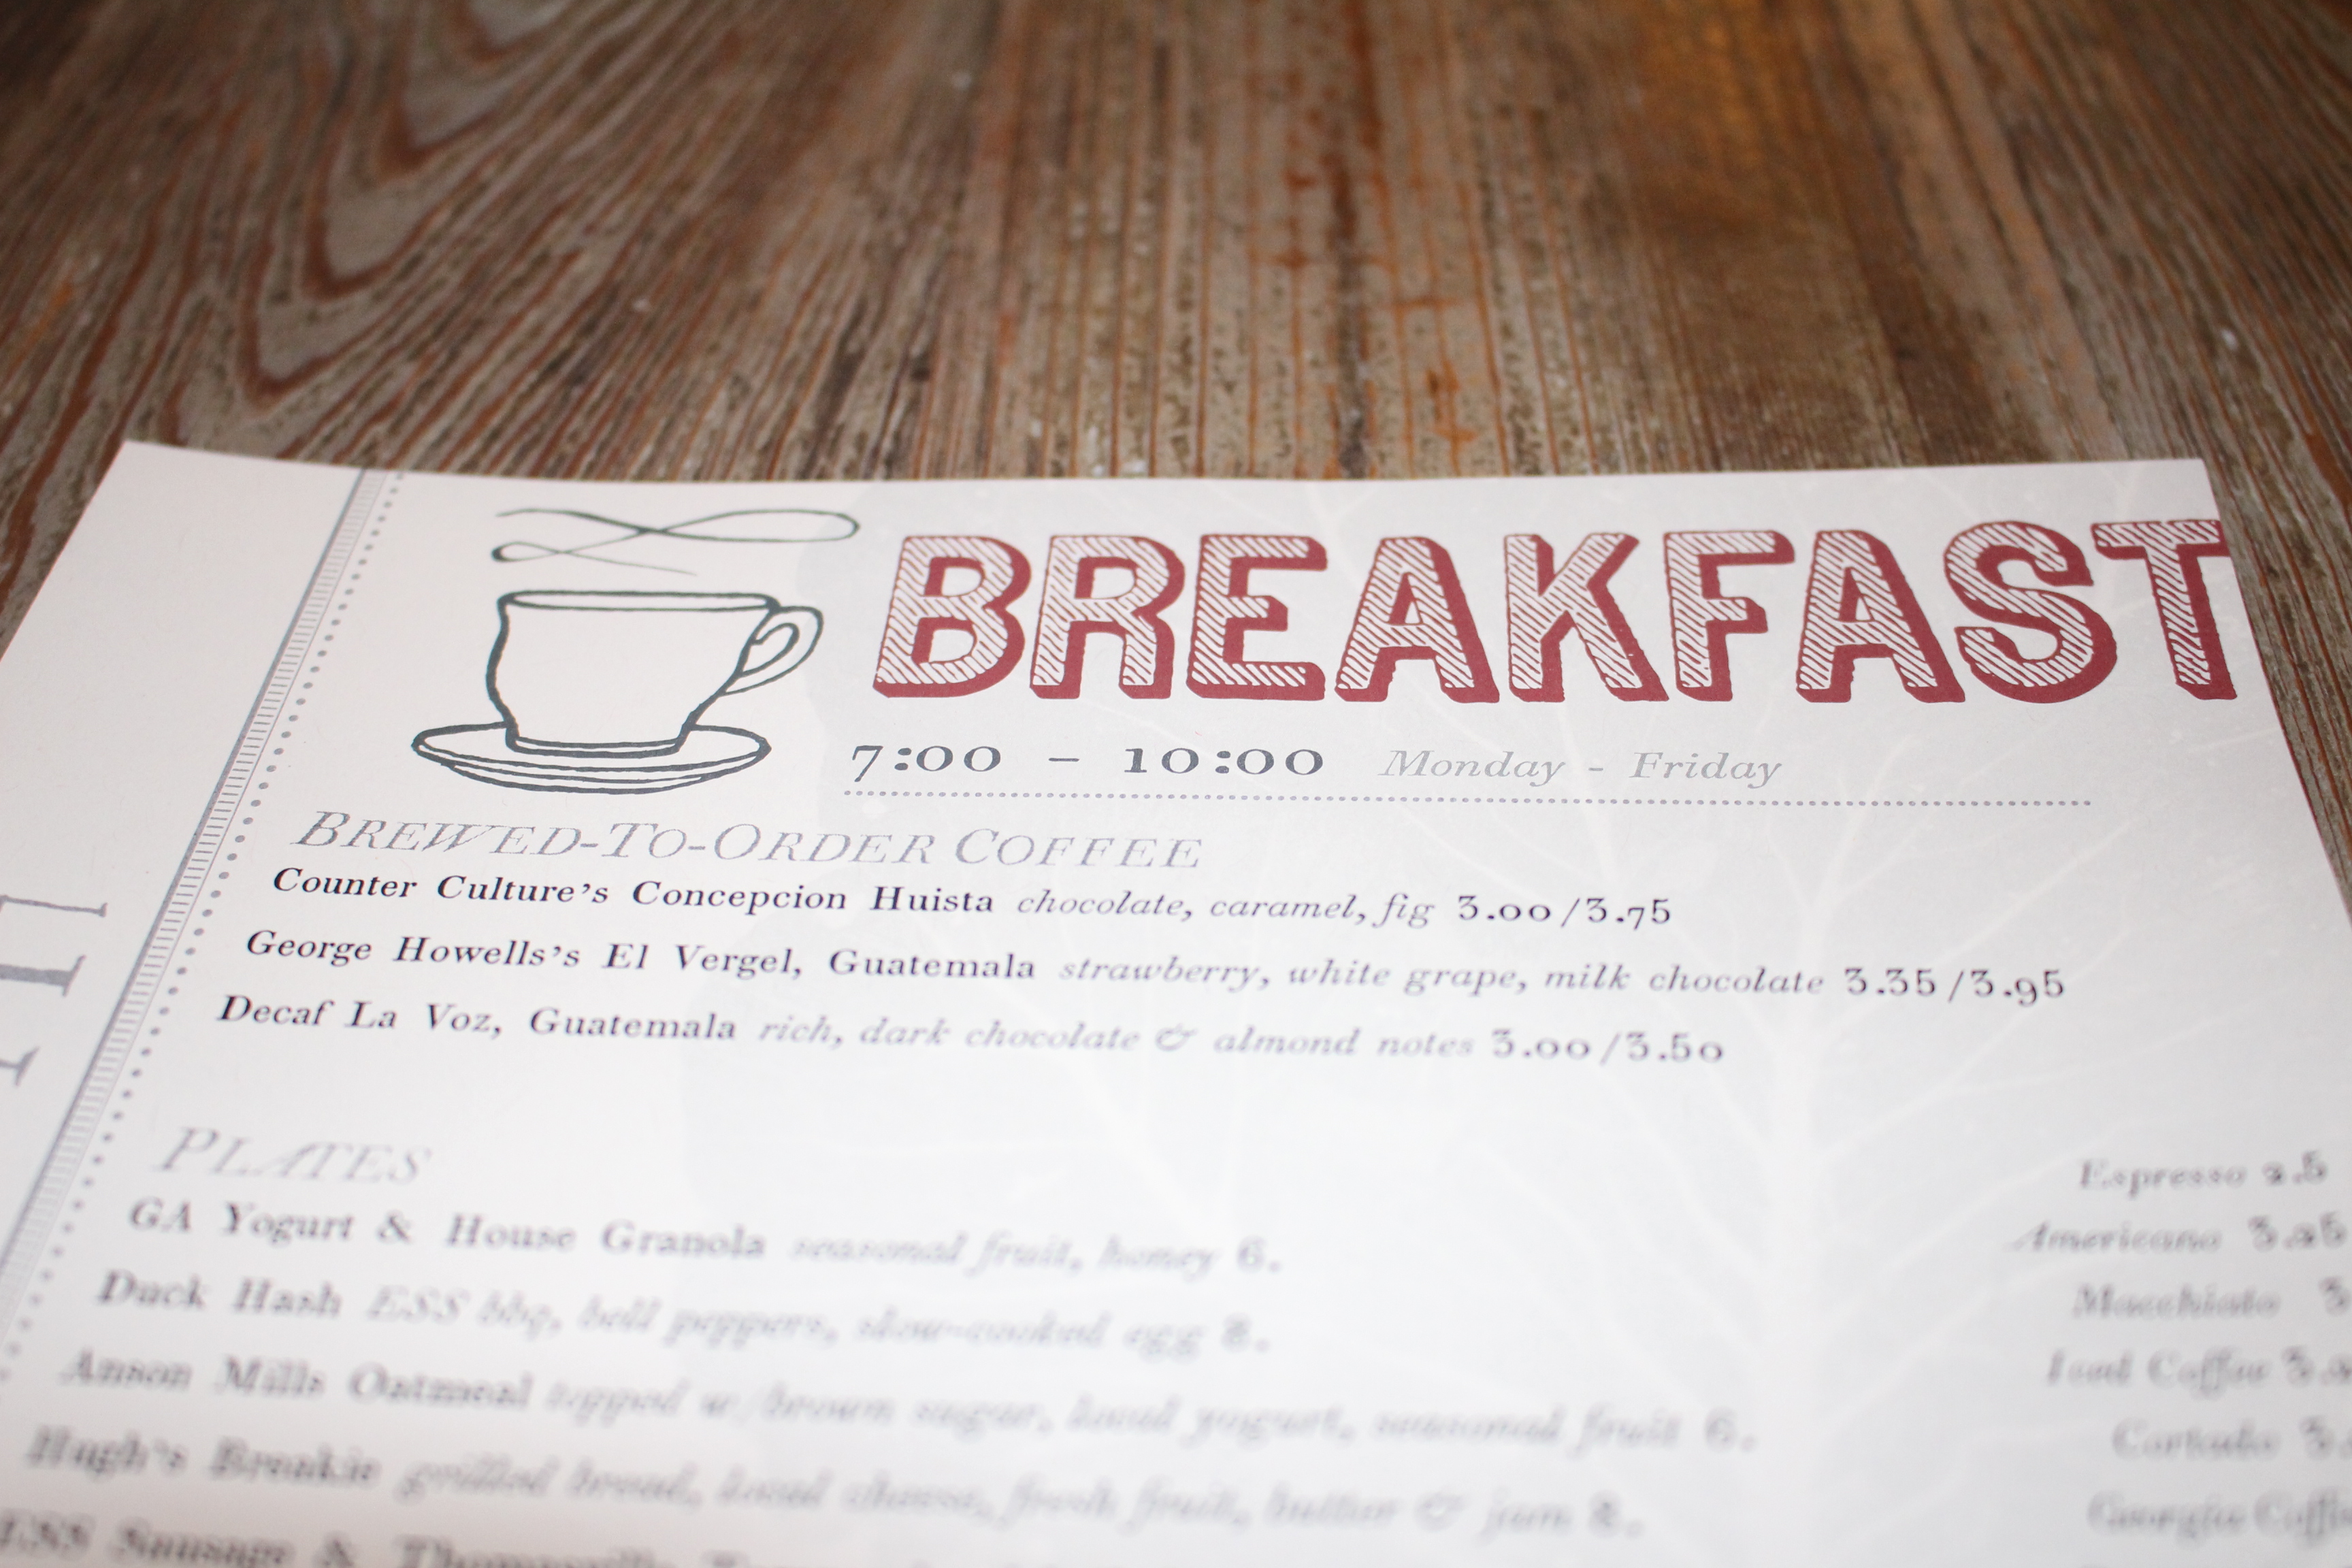 BREAKFAST
7:00 – 10:00 Monday - Friday
BREWED-TO-ORDER COFFEE
Counter Culture's Concepcion Huista chocolate, caramel, fig 3.00/3.75
George Howells's El Vergel, Guatemala strawberry, white grape, milk chocolate 3.35/3.95
Decaf La Voz, Guatemala rich, dark chocolate & almond notes 3.00/3.50
PLATES
GA Yogurt & House Granola seasonal fruit, honey 6.
Duck Hash ESS bbq, bell peppers, slow-cooked egg 8.
Anson Mills Oatmeal topped w/brown sugar, local yogurt, seasonal fruit 6.
Hugh's Breakie grilled bread, local cheese, fresh fruit, butter & jam 8.
ESS Sausage &
Espresso 2.5
Americano 3.25
Macchiato
Iced Coffee
Cortado
Georgia